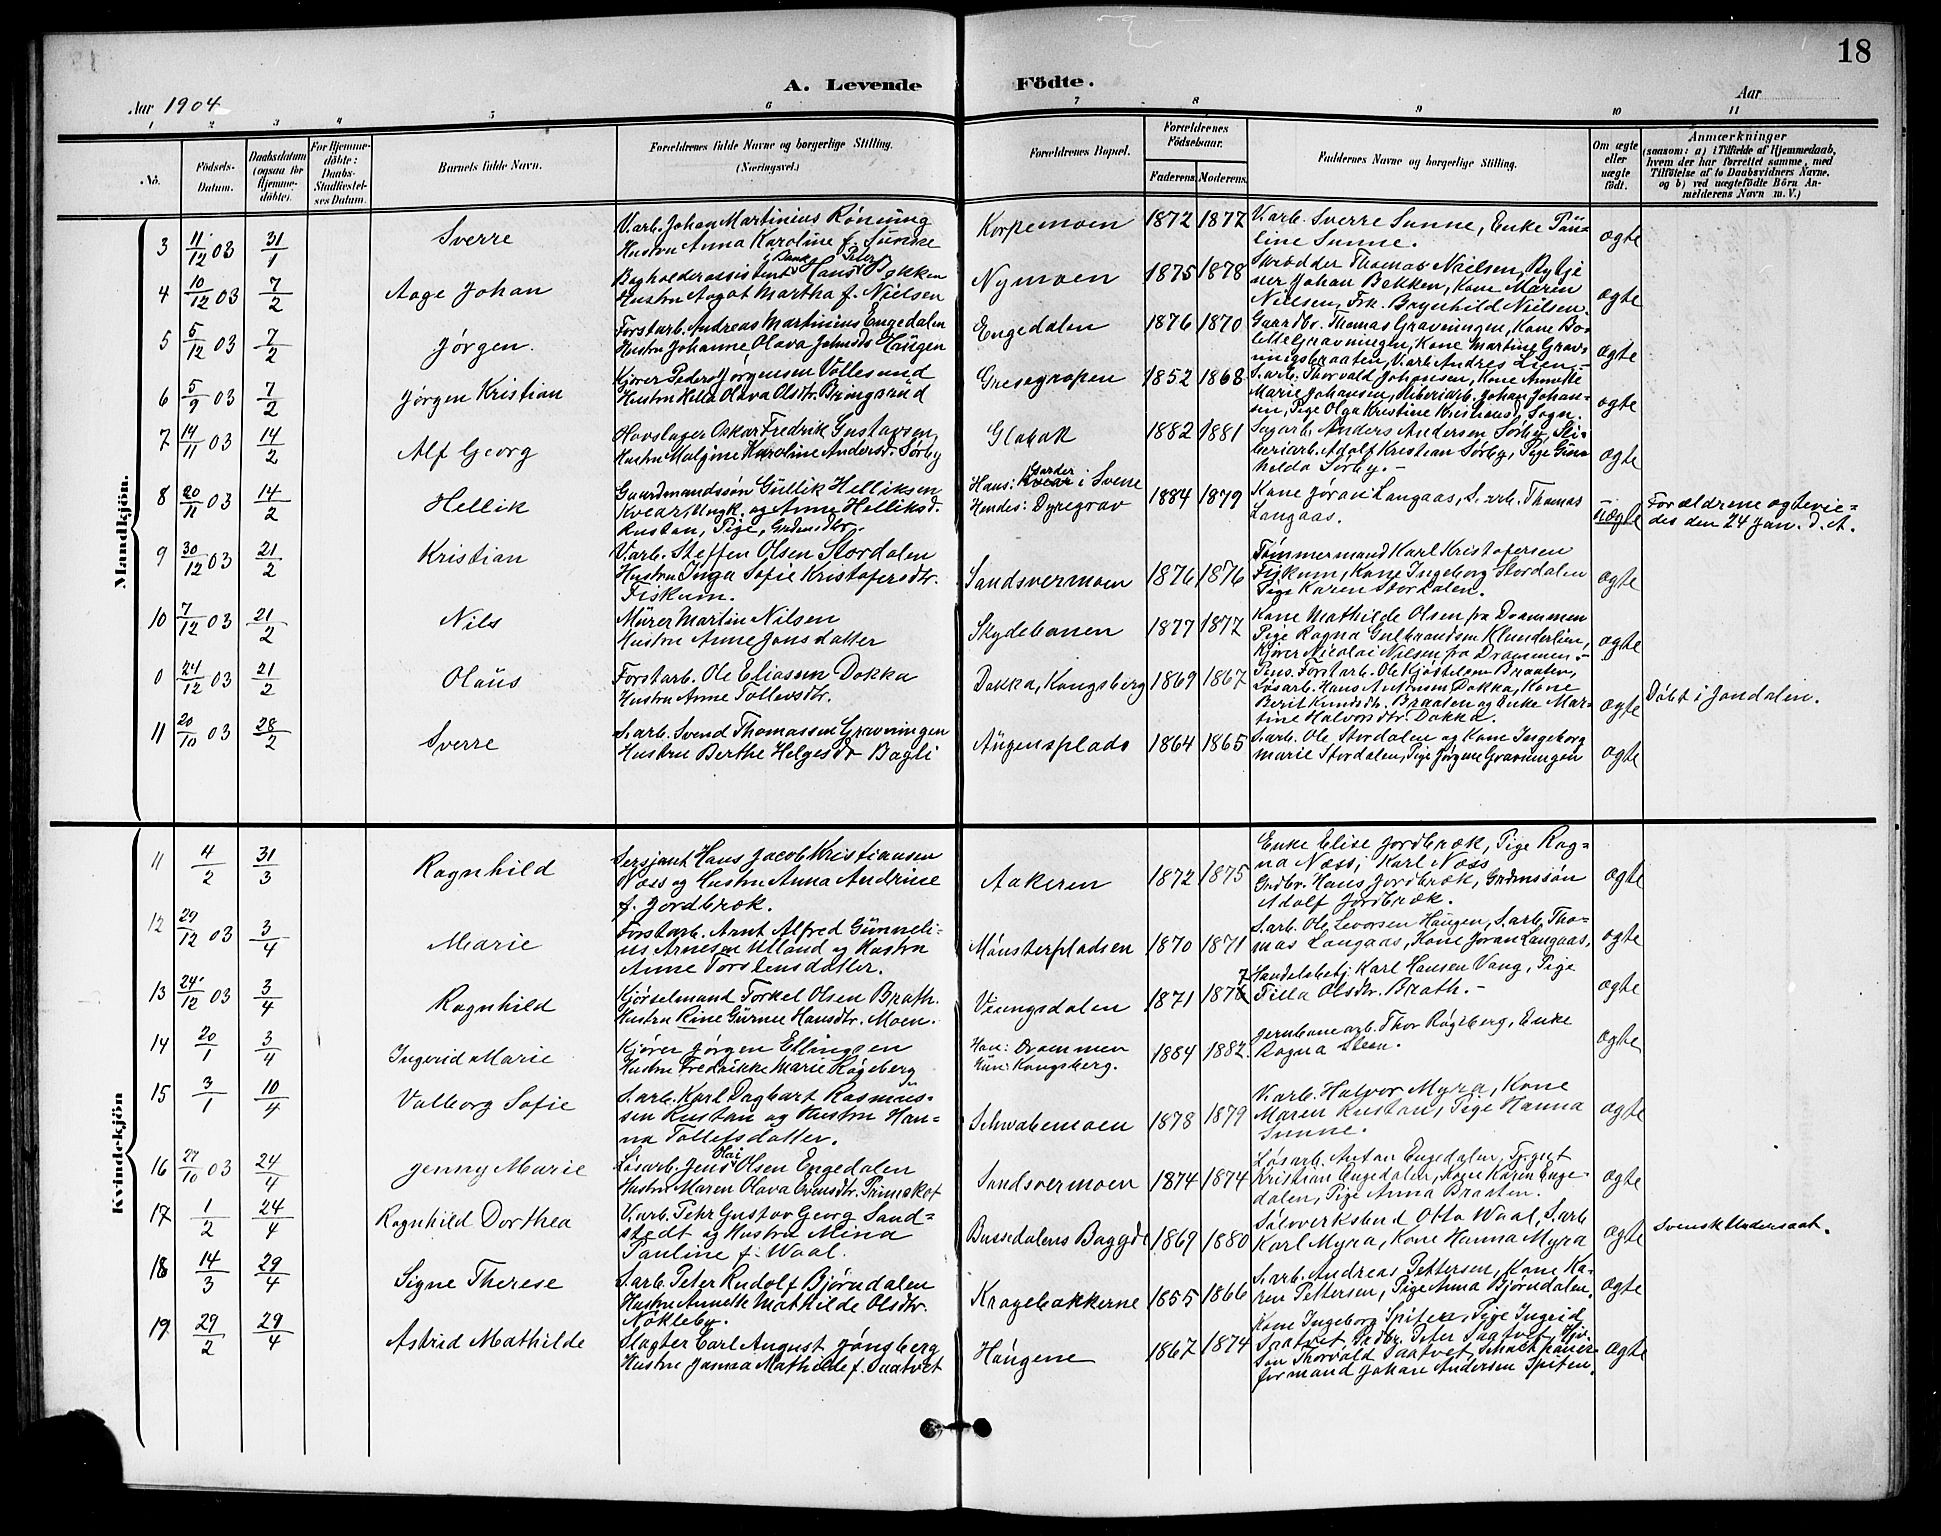 18
A. Levende Födte.
Aar 1904
Aar
1 2 3 4 5 6 7 8 9 10 11
No.
Födsels-Datum.
Daabsdatum (ogsaa for Hjemme-döbte).
For Hjemme-döbte: Daabs-Stadfæstel-ses Datum.
Barnets fulde Navn.
Forældrenes fulde Navne og borgerlige Stilling. (Næringsvei.)
Forældrenes Bopæl.
Forældrenes Födselsaar.
Faderens. Moderens.
Faddernes Navne og borgerlige Stilling.
Om ægte eller uægte födt.
Anmærkninger
(saasom: a) i Tilfælde af Hjemmedaab, hvem der har forrettet samme, med Tilföielse af to Daabsvidners Navne, og b) ved uægtefödte Börn An-melderens Navn m. V.)
Mandkjön.
3 11/12 03 31/1 Sverre
V.arb. Johan Martinius Rönning
Hustru Anna Karoline f. Sunne
Korpemoen 1872 1877
V.arb. Sverre Sunne, Enke Pau-
line Sunne.
ægte
4 10/12 03 7/2 Aage Johan
Bogholderassistent i Bank Hans Peter Bekken
Hustru Aagot Martha f. Nielsen
Nymoen 1875 1878
Skrædder Thomas Nielsen, Bytje
ner Johan Bekken, Kone Maren
Nielsen, Frk. Brynhild Nielsen.
ægte
5 5/12 03 7/2 Jørgen.
Forstarb. Andreas Martinius Engedalen
Hustru Johanne Olava Johnsds Haugen
Engedalen 1876 1870
Gaardbr. Thomas Gravningen, Kone Bo-
lette Gravningen, Kone Martine Grav-
ningsbraaten, V.arb. Andres Lien.
ægte
6 5/9 03 7/2 Jørgen Kristian
Kjører Peder Jørgensen Vollesund
Hustru Helle Olava Olsdtr. Bringsrud
Gresegropen 1852 1868
S.arb. Thorvald Johansen, Kone Annette
Marie Johansen, Sliberiarb. Johan Johan-
sen, Pige Olga Kristine Kristiansd. Sogn.
ægte
7 14/11 03 14/2 Alf Georg
Hovslager Oskar Fredrik Gustavsen
Hustru Malgine Karoline Andersd. Sørby
Glabak 1882 1881
Sagarb. Anders Andersen Sørby, Sli-
beriarb. Adolf Kristian Sørby, Pige Guna
hilda Sørby.-
ægte
8 20/11 03 14/2 Hellik
Gaardmandssøn Gullik Helliksen
Kvear, Ungk. og Anne Helliksd.
Rustan, Pige, Grdmdtr.
Hans: Kvear i Svene
Hendes: Dyregrav
1884 1879
Kone Jøran Langaas, S.arb. Thomas
Langaas.
uægte
Forældrene ægtevie-
des den 24 Jan. d. A.
9 30/12 03 21/2 Kristian
V.arb. Steffen Olsen Stordalen
Hustru Inga Sofie Kristofersdtr.
Fiskum.
Sandsvermoen 1876 1876
Tømmermand Karl Kristofersen
Fiskum, Kone Ingeborg Stordalen
Pige Karen Stordalen.
ægte
10 7/12 03 21/2 Nils
Murer Martin Nilsen
Hustru Anne Jonsdatter
Skydebanen 1877 1877
Kone Mathilde Olsen fra Drammen
Pige Ragna Gulbrandsen Klunderlien,
Kjører Nicolai Nilsen fra Drammen.-
ægte
0 24/12 03 21/2 Olaus
Forstarb. Ole Eliassen Dokka
Hustru Anne Tollevsdtr.
Dokka, Kongsberg 1869 1867
Pens. Forstarb. Ole Kjøstelsen Braaten,
Løsarb. Hans Antonsen Dokka, Kone
Berit Knudsdtr. Braaten og Enke Mar-
tine Halvorsdtr. Dokka.
ægte
Døbt i Jondalen.
11 20/10 03 28/2 Sverre
S.arb. Svend Thomassen Gravningen
Hustru Berthe Helgesdtr Bagli
Augensplads 1864 1865
S.arb. Ole Stordalen og Kone Ingeborg
Marie Stordalen, Pige Jørgine Gravningen
ægte
Kvindekjön
11 4/2 31/3 Ragnhild
Sersjant Hans Jacob Kristiansen
Næss og Hustru Anna Andrine
f. Jordbræk.
Aakeren 1872 1875
Enke Elise Jordbræk, Pige Rag-
na Næss, Karl Næss
Grdbr. Hans Jordbræk, Grdmssøn
Adolf Jordbræk.
ægte
12 29/12 03 3/4 Marie
Forstarb. Arnt Alfred Gunneli-
us Arnesen Utland og Hustru
Anne Torstensdatter.
Münsterpladsen 1870 1871
S.arb. Ole Levorsen Haugen, S.arb. Tho-
mas Langaas, Kone Jøran Langaas.
ægte
13 24/12 03 3/4 Ragnhild
Kjørselmand Torkel Olsen Brath.
Hustru Rine Gurine Hansdtr. Moen.
Veungsdalen 1871 187
Handelsbetj. Karl Hansen Vang, Pige
Tilla Olsdtr. Brath.-
ægte
14 20/1 3/4 Ingerid Marie
Kjører Jørgen Ellingsen
Hustru Fredrikke Marie Røgeberg
Han: Drammen
Hun: Kongsberg.
1884 1882.
Jernbanearb. Thor Røgeberg, Enke
Ragna Steen.
ægte
15 3/1 10/4 Valborg Sofie
S.arb. Karl Dagbart Rasmus-
sen Rustan og Hustru Han-
na Tollefsdatter.
Schwabemoen 1878 1879
V.arb. Halvor Myra, Kone
Maren Rustan, Pige Hanna
Sunne.
ægte
16 27/10 03 24/4 Jenny Marie
Løsarb. Jens Olai Olsen Engedalen
Hustru Maren Olava Evensdtr. Prinsehof
Sandsvermoen 1874 1874
Løsarb. Anton Engedalen,
Kristian Engedalen, Kone Karen Enge-
dalen, Pige Anna Braaten.
ægte
17 1/2 24/4 Ragnhild Dorthea
V.arb. Pehr Gustav Georg Sand-
stedt og Hustru Mina
Pauline f. Waal.
Bussedalens Baggd. 1869 1880
Sølvverksbud Otto Waal, S.arb
Karl Myra, Kone Hanna Myra
ægte
Svensk Undersaat.
18 14/3 29/4 Signe Therese
S.arb. Peter Rudolf Bjørndalen
Hustru Annette Mathilde Olsdtr.
Nökleby.
Kragebakkerne 1855 1866
S.arb. Andreas Pettersen, Kone Ka-
ren Pettersen, Pige Anna Bjørndalen.
ægte
19 29/2 29/4 Astrid Mathilde
Slagter Carl August Jóngberg
Hustru Janna Mathilde f. Saatvet
Haugene 1867 1874
Kone Ingeborg Spiten, Pige Ingrid
Saatvet, Grdbr. Peter Saatvet,
Søn Thorvald Saatvet,
formand Johan Andersen Spiten.
ægte